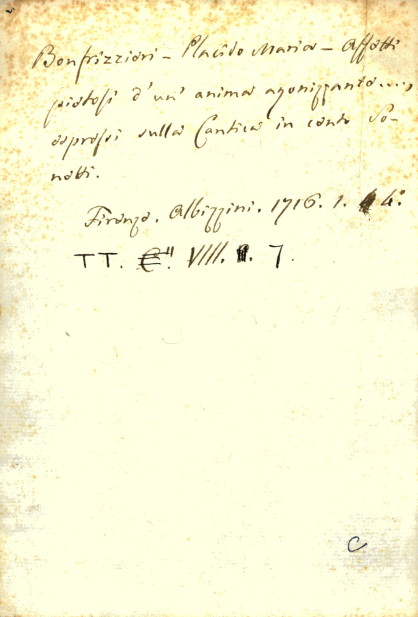 Bonfrizzieri - Placido Maria - Affetti
pietosi d'un' anima agonizzante....,
espressi sulla Cantica in cento So-
netti.
Firenze. Albizzini. 1716. 1. 4.°
TT. VIII. 7.
C